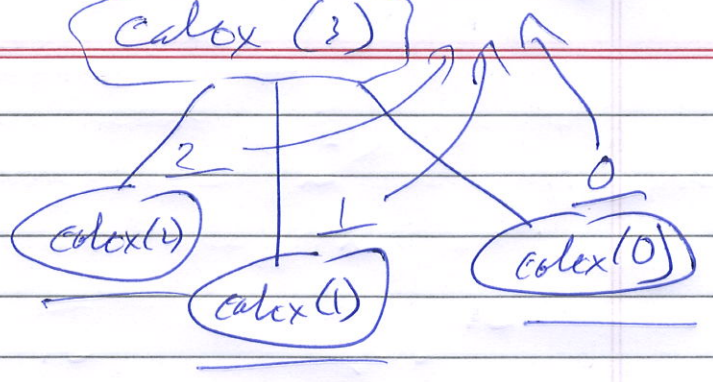 calcx (3)
2
0
calcx(2)
1
calcx(0)
calcx(1)